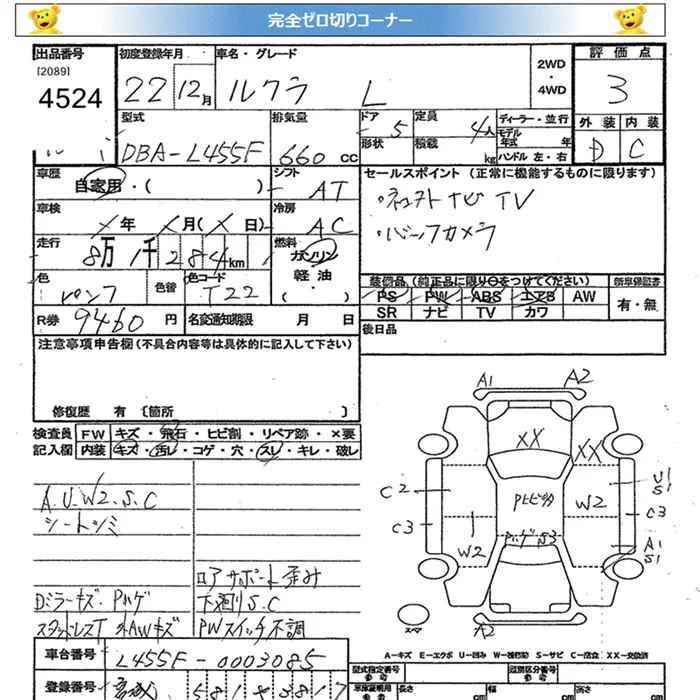 完全ゼロ切りコーナー
出品番号
[2089]
4524
初度登録年月
22 12月
車名・グレード
ルクラ L
2WD
・
4WD
評価点
3
外装 内装
D C
型式
DBA-L455F
排気量
660 cc
ドア
5
形状
定員
4人
積載
kg
ディーラー・並行
モデル年式 年
ハンドル 左・右
車歴
自家用・( )
シフト
AT
車検
年 月( 日)
冷房
AC
走行
8万1千284km
燃料
ガソリン
軽油
・( )
色
色替
色コード
T22
R券 9460 円
名変通知期限 月 日
セールスポイント (正常に機能するものに限ります)
ナビ TV
・バックカメラ
装備品(純正品に限り○をつけてください)
PS PW ABS エアB AW
SR ナビ TV カワ
新車保証書
有・無
後日品
注意事項申告欄(不具合内容等は具体的に記入して下さい)
修復歴 有 〔箇所 〕
検査員記入欄
FW キズ・飛石・ヒビ割・リペア跡・×要
内装 キズ・汚レ・コゲ・穴・スレ・キレ・破レ
A.U.W2.S.C
シートシミ
ロアサポート歪み
Dミラーキズ Pハゲ
下廻りS.C
スタッドレスT 外AWキズ
PWスイッチ不調
A1 A2
XX XX
U1
S1
C2 Pヒビ W2 C3
C3 W2 Pハゲ S3 A1
S1
スペア
A2
A-キズ E-エクボ U-凹み W-補修跡 S-サビ C-腐食 XX-交換済
車台番号
L455F-0003085
登録番号
型式指定番号
参考
類別区分番号
参考
長さ
cm
幅
cm
高さ
cm